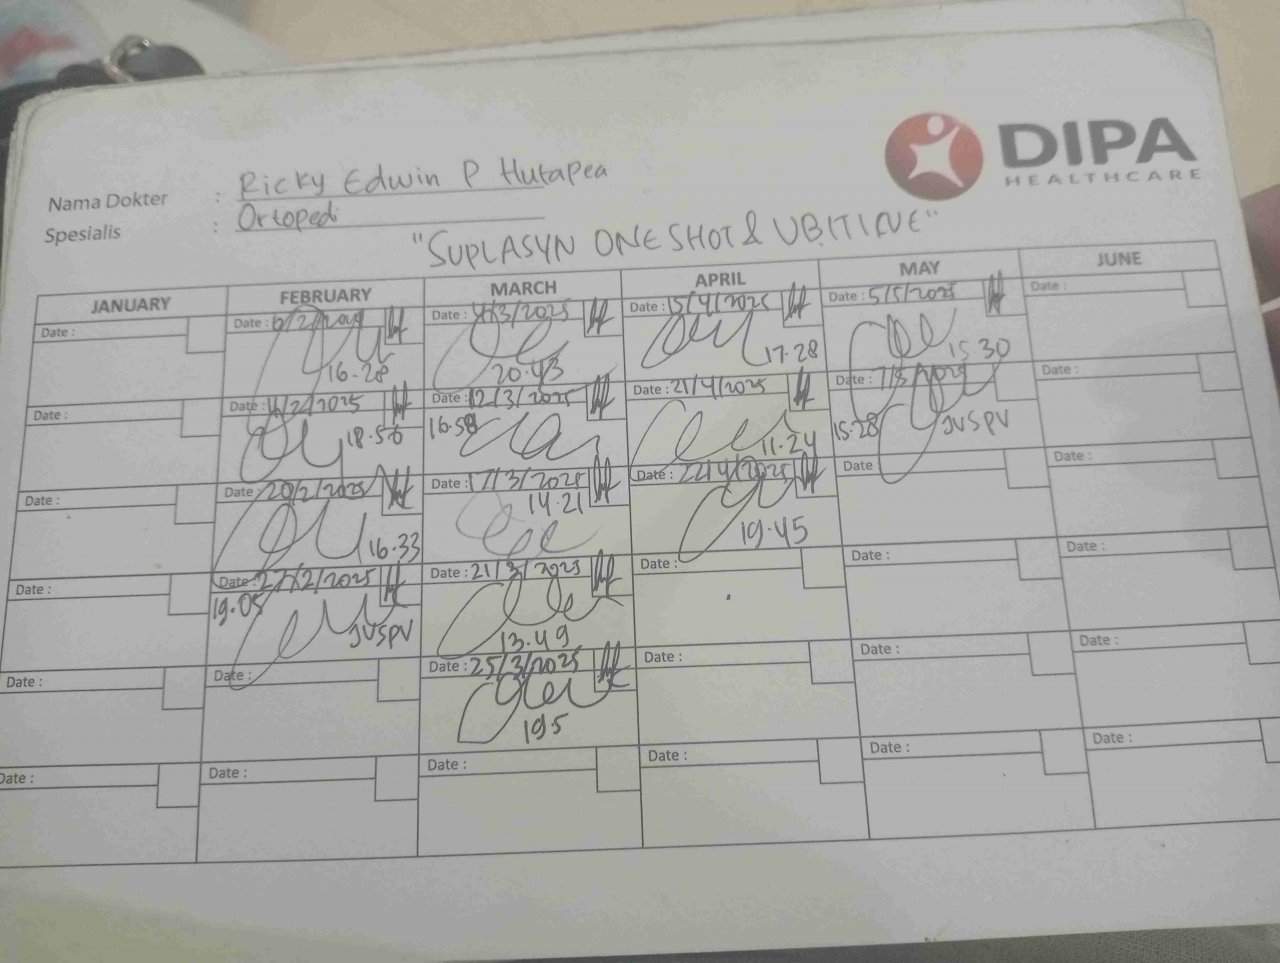 DIPA
HEALTHCARE
Nama Dokter : Ricky Edwin P Hutapea
Spesialis : Ortopedi
"SUPLASYN ONE SHOT & UBITIRVE"
JANUARY FEBRUARY MARCH APRIL MAY JUNE
Date : Date : 6/2/ Date : /3/2025 Date : 15/4/2025 Date : 5/5/2025 Date :
16.28 20.43 17.28 15 30
Date : Date : /2/2025 Date : 12/3/2025 Date : 21/4/2025 Date : Date :
18.56 16.58 11.24 15.28 JVSPV
Date : Date : 20/2/2025 Date : 17/3/2025 Date : 22/4/2025 Date Date :
16.33 14.21 19.45
Date : Date : 27/2/2025 Date : 21/3/2025 Date : Date : Date :
19.05 JVSPV 13.49
Date : Date : Date : 25/3/2025 Date : Date : Date :
19.5
Date : Date : Date : Date : Date : Date :